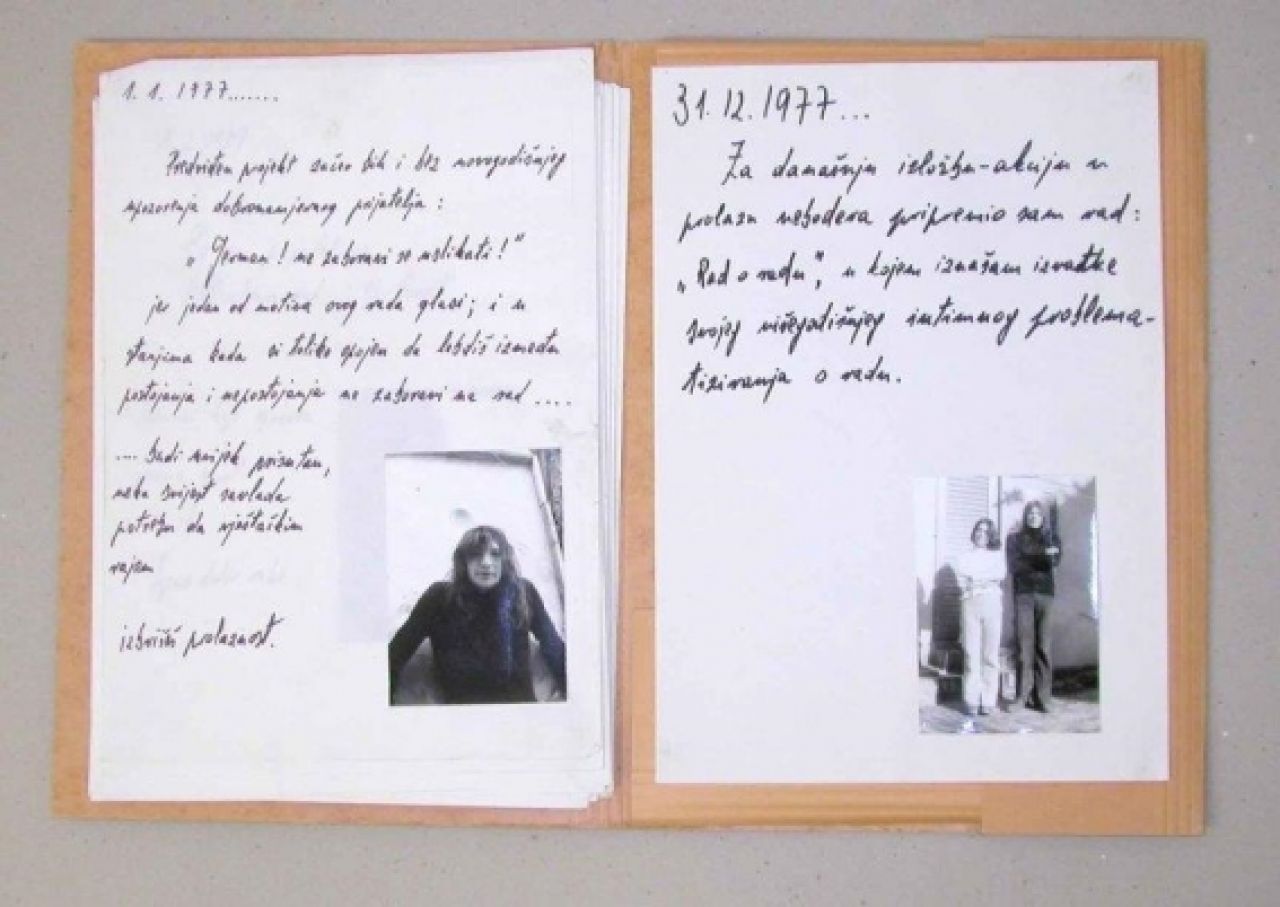 1. 1. 1977.......
Predviđen projekt začeo bih i bez novogodišnjeg
upozorenja dobronamjernog prijatelja :
„ German ! ne zaboravi se uslikati ! “
jer jedan od motiva ovog rada glasi ; i u
stanjima kada si toliko opojen da lebdiš između
postojanja i nepostojanja ne zaboravi na rad ....
.... budi uvijek prisutan,
neka svijest savlada
potrebu da vještačkim
rajem
izbrišeš prolaznost.
31. 12. 1977...
Za današnju izložbu-akciju u
prolazu nebodera pripremio sam rad :
„Rad o radu“, u kojem iznašam izvatke
svojeg višegodišnjeg intimnog problema-
tiziranja o radu.